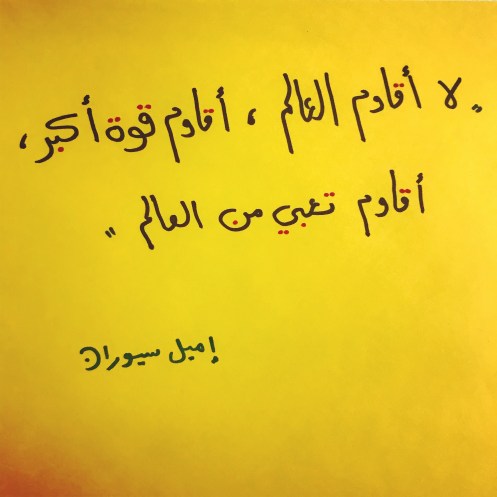 " لا أقاوم العالم ، أقاوم قوة أكبر ،
أقاوم تعبي من العالم "
إميل سيوران